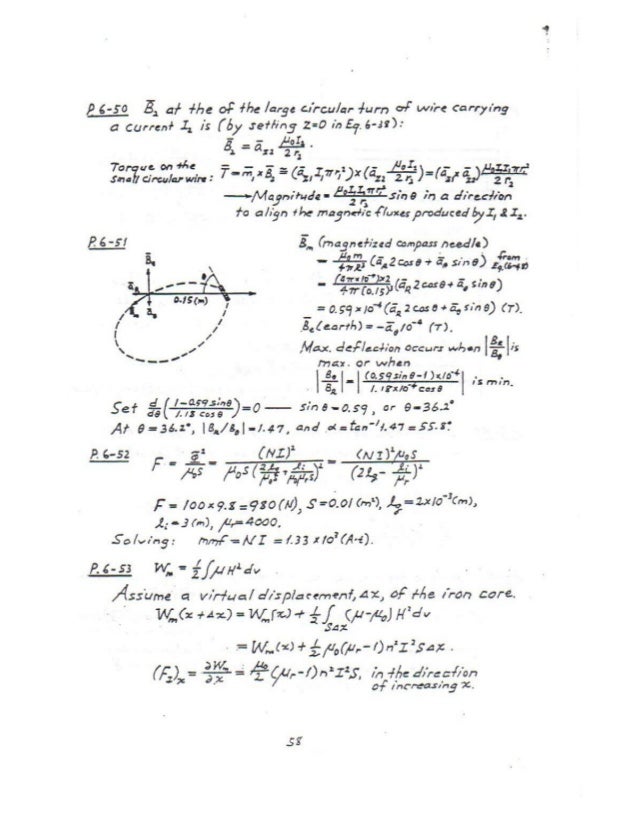 P.6-50 B̄₂ at the of the large circular turn of wire carrying
a current I₂ is (by setting z=0 in Eq. 6-38):
B̄₂ = ā_z2 μ₀I₂/2r₂ .
Torque on the small circular wire: T̄ = m̄₁ × B̄₂ ≅ (ā_z1 I₁πr₁²) × (ā_z2 μ₀I₂/2r₂) = (ā_z1 × ā_z2) μ₀I₁I₂πr₁²/2r₂
→ Magnitude = μ₀I₁I₂πr₁²/2r₂ sin θ in a direction
to align the magnetic fluxes produced by I₁ & I₂.
P.6-51 B̄_m (magnetized compass needle)
= μ₀m/4πR³ (ā_R 2 cos θ + ā_θ sin θ) from Eq.(6-48)
= (4π×10⁻⁷)×2/4π(0.15)³ (ā_R 2 cos θ + ā_θ sin θ)
= 0.59 × 10⁻⁴ (ā_R 2 cos θ + ā_θ sin θ) (T).
B̄_e (earth) = −ā_θ 10⁻⁴ (T).
B̄_e
ā_R
θ
0.15 (m)
B̄_m
ā_θ
Max. deflection occurs when |B_R/B_θ| is
max. or when
|B_θ/B_R| = |(0.59 sin θ − 1)×10⁻⁴/1.18×10⁻⁴ cos θ| is min.
Set d/dθ (1−0.59 sin θ/1.18 cos θ) = 0 — sin θ = 0.59, or θ = 36.2°
At θ = 36.2°, |B_R/B_θ| = 1.47, and α = tan⁻¹ 1.47 = 55.8°.
P.6-52 F = Φ̄²/μ₀S = (NI)²/μ₀S(2l_g/μ₀S + l_i/μ₀μ_rS)² = (NI)²μ₀S/(2l_g − l_i/μ_r)²
F = 100×9.8 = 980 (N), S = 0.01 (m²), l_g = 2×10⁻³ (m),
l_i = 3 (m), μ_r = 4000.
Solving: mmf = NI = 1.33 × 10³ (A·t).
P.6-53 W_m = ½∫μH² dv .
Assume a virtual displacement, Δx, of the iron core.
W_m(x+Δx) = W_m(x) + ½ ∫_SΔx (μ−μ₀)H² dv
= W_m(x) + ½ μ₀(μ_r−1)n²I²SΔx .
(F_I)_x = ∂W_m/∂x = μ₀/2 (μ_r−1)n²I²S, in the direction
of increasing x.
58